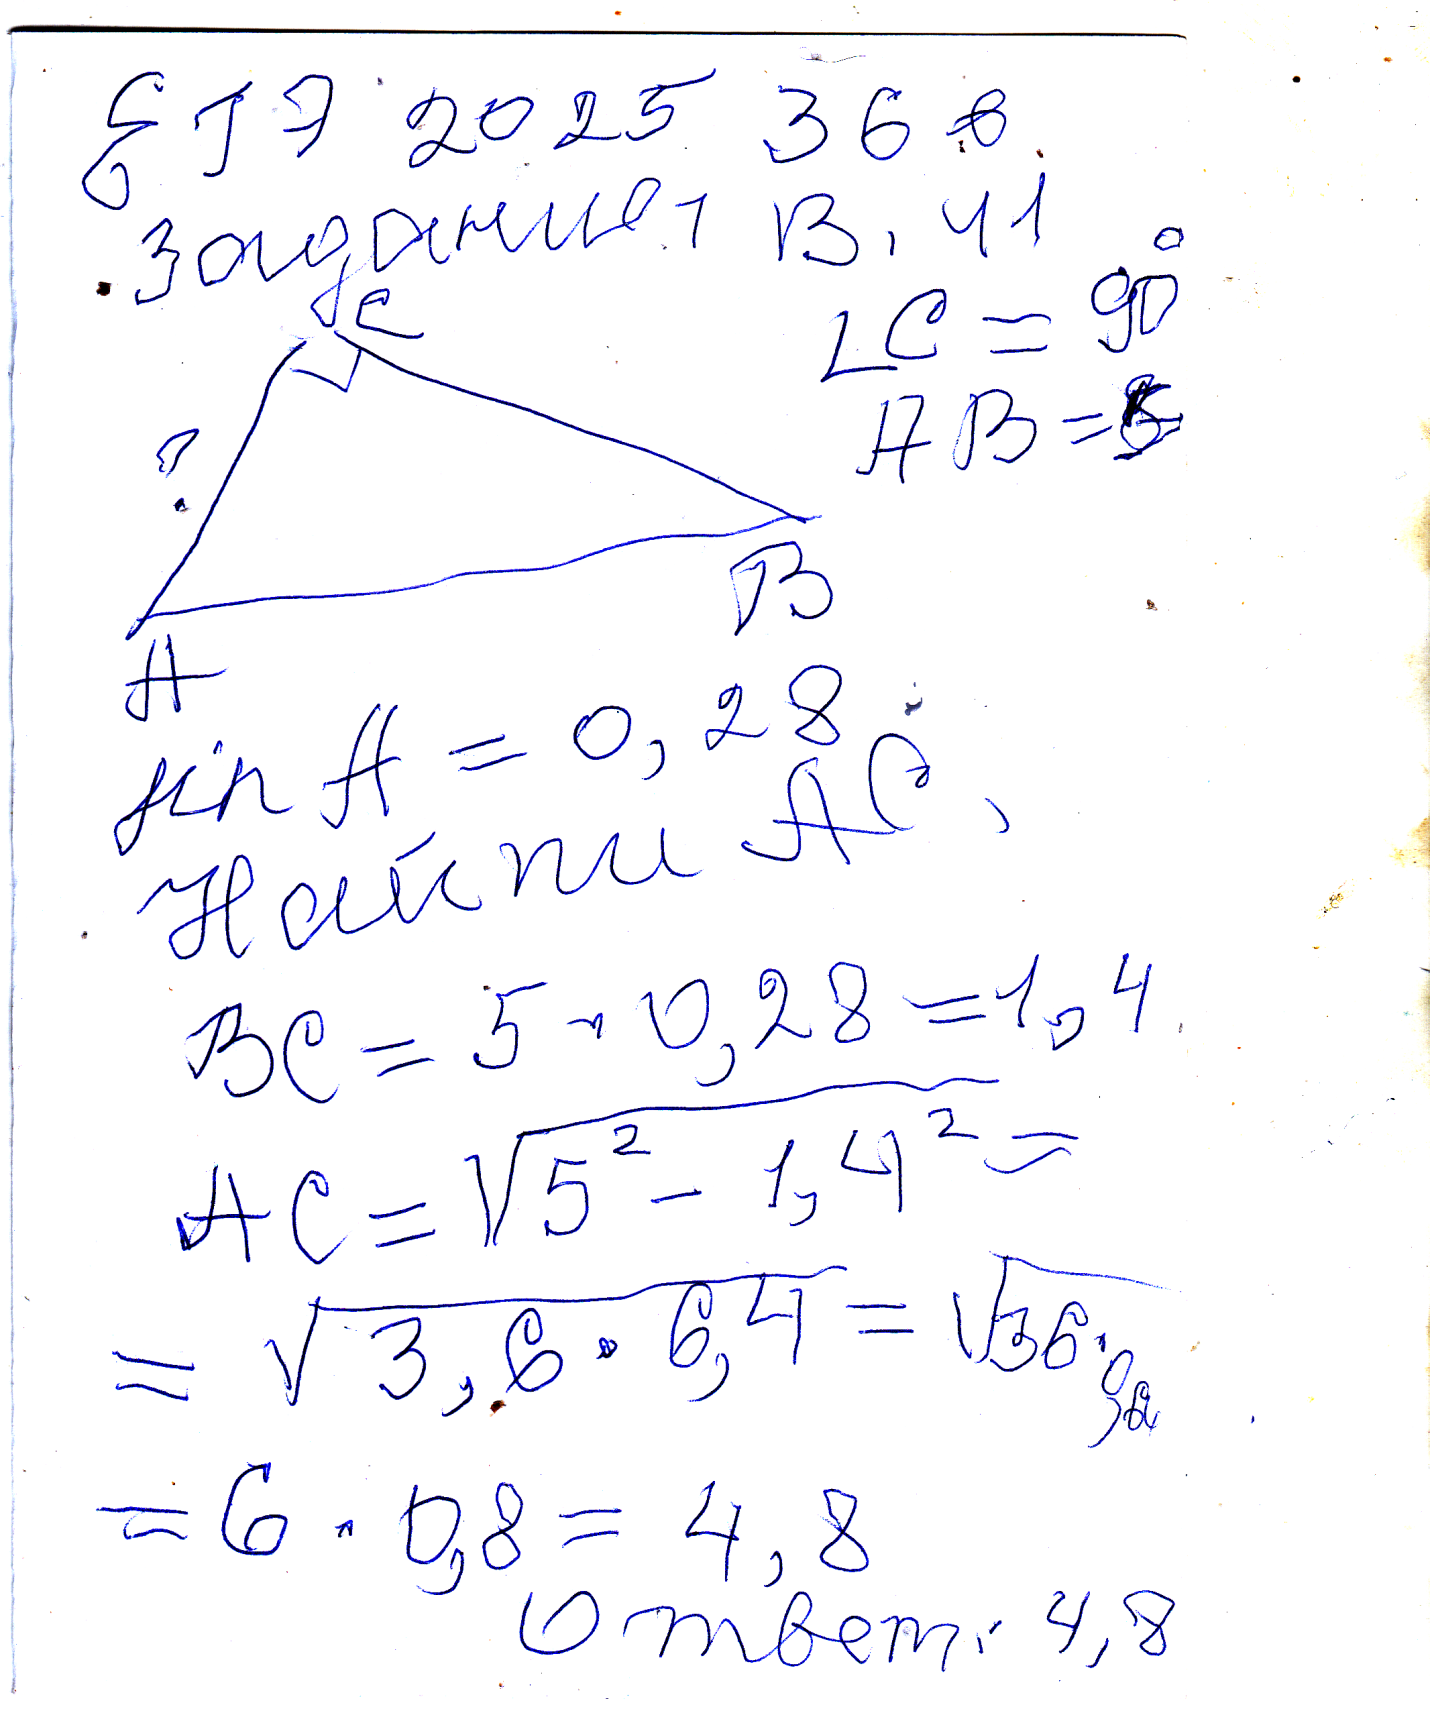 ЕГЭ 2025 36 в.
Задание 1 В. 41
C
∠C = 90°
AB = 5
?
B
A
sin A = 0,28
Найти AC.
BC = 5 · 0,28 = 1,4
AC = √5² - 1,4² =
= √3,6 · 6,4 = √36 · 0,64
= 6 · 0,8 = 4,8
Ответ: 4,8